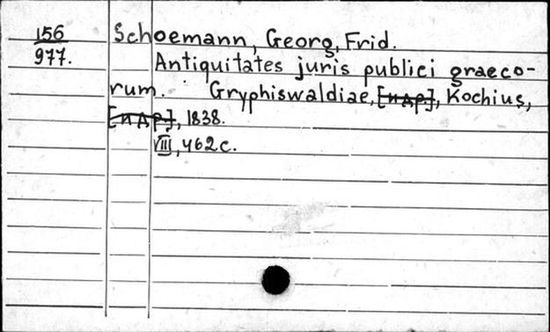 156
977.
Schoemann, Georg, Frid.
Antiquitates juris publici graeco-
rum. Gryphiswaldiae, [и др], Kochius,
[и др], 1838.
VIII, 462 с.